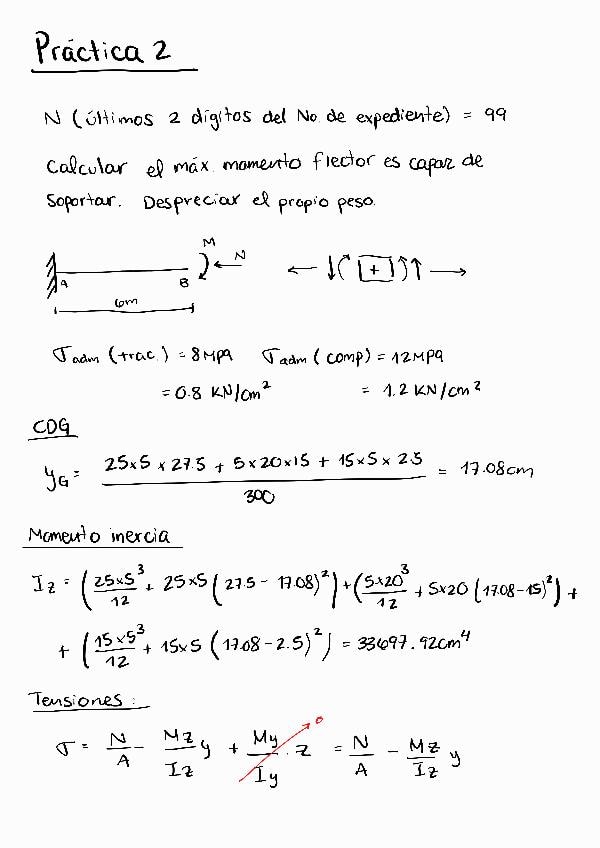 Práctica 2
N (últimos 2 dígitos del No. de expediente) = 99
Calcular el máx. momento flector es capaz de
soportar. Despreciar el propio peso.
M
N
A
B
6m
+
σadm (trac.) = 8 MPa σadm (comp) = 12 MPa
= 0.8 KN/cm² = 1.2 KN/cm²
CDG
yG = (25x5 x 27.5 + 5x20x15 + 15x5 x 2.5) / 300 = 17.08cm
Momento inercia
Iz = (25x5³/12 + 25x5 (27.5 - 17.08)²) + (5x20³/12 + 5x20 (17.08-15)²) +
+ (15x5³/12 + 15x5 (17.08 - 2.5)²) = 33697.92cm⁴
Tensiones:
σ = N/A - Mz/Iz y + My/Iy . z = N/A - Mz/Iz y
0